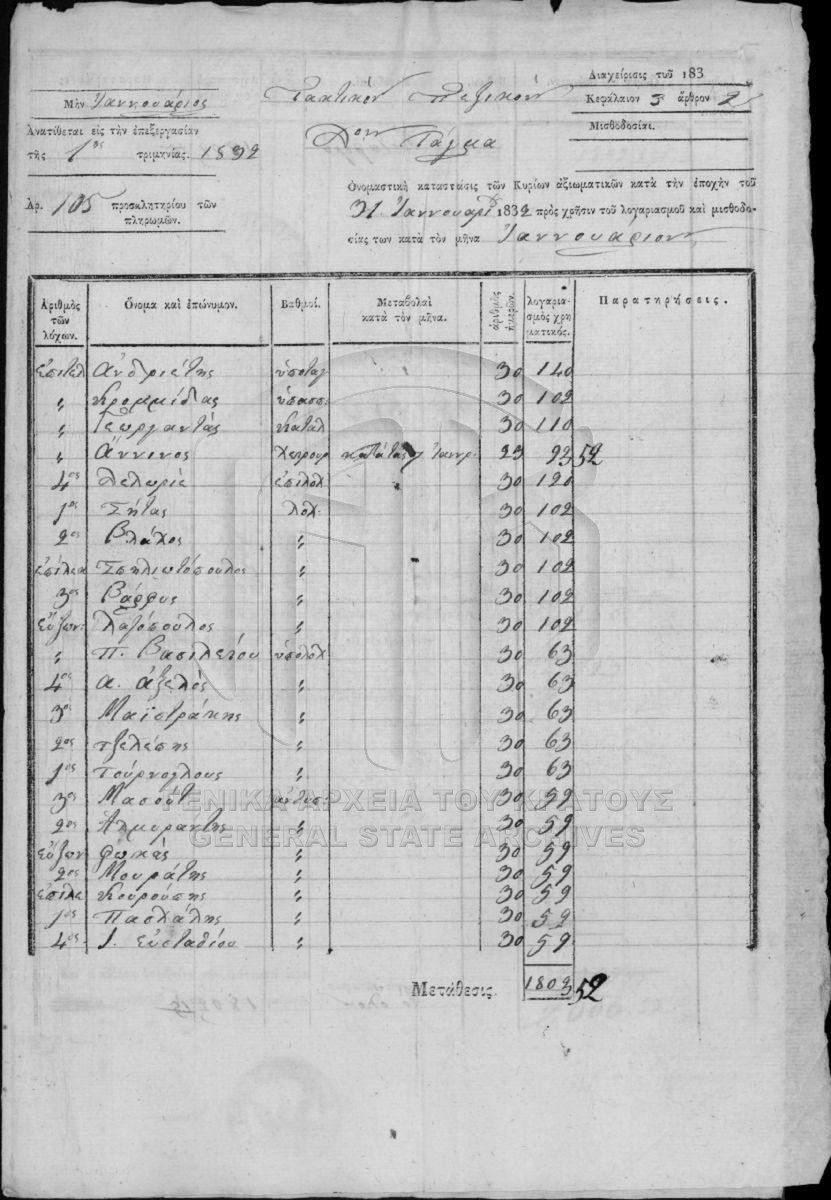 Μὴν Ἰαννουάριος
Ἀνατίθεται εἰς τὴν ἐπεξεργασίαν
τῆς 1ης τριμηνίας. 1832
Ἀρ. 105 προσκλητηρίου τῶν
πληρωμῶν.
Τακτικὸν Πεζικὸν
Τάγμα
Διαχείρισις τοῦ 183
Κεφάλαιον 3 ἄρθρον 2
Μισθοδοσίαι.
Ὀνομαστικὴ κατάστασις τῶν Κυρίων ἀξιωματικῶν κατὰ τὴν ἐποχὴν τοῦ
31 Ἰαννουαρί 1832 πρὸς χρῆσιν τοῦ λογαριασμοῦ καὶ μισθοδο-
σίας των κατὰ τὸν μῆνα Ἰαννουάριον
Ἀριθμὸς τῶν λόχων. Ὄνομα καὶ ἐπώνυμον. Βαθμοί. Μεταβολαὶ κατὰ τὸν μῆνα. ἀριθμὸς ἡμερῶν. λογαριασμὸς χρηματικός. Παρατηρήσεις.
ἐπιτελ Ἀνδριέτης ὑπόταγ 30 140
„ Κρομμίδας ὑπασπι 30 102
„ Γεωργαντάς Καταλ 30 110
„ Ἄννινος Χειρουρ 23 93 52
4ος Πελωριέ ἐπιλοχ 30 120
1ος Σήτας Λοχ. 30 102
2ος Βλάχος „ 30 102
ἐπίλεκ Σπηλιωτόπουλος „ 30 102
3ος Βάρφης „ 30 102
εὔζων: Λαζόπουλος „ 30 102
„ Π. Βασιλείου ὑπολοχ 30 63
4ος Α. Ἀξελός „ 30 63
3ος Μαϊστράκης „ 30 63
2ος Τζελέπης „ 30 63
1ος Τούρνογλους „ 30 63
3ος Μασούτ ἀνθυπ: 30 59
2ος Ἀλμυράντης „ 30 59
εὔζων Φωκάς „ 30 59
2ος Μουράτης „ 30 59
ἐπίλε Κουρούσης „ 30 59
1ος Πασχάλης „ 30 59
4ος Ι. Εὐσταθίου „ 30 59
Μετάθεσις 1803 52
ΓΕΝΙΚΑ ΑΡΧΕΙΑ ΤΟΥ ΚΡΑΤΟΥΣ
GENERAL STATE ARCHIVES